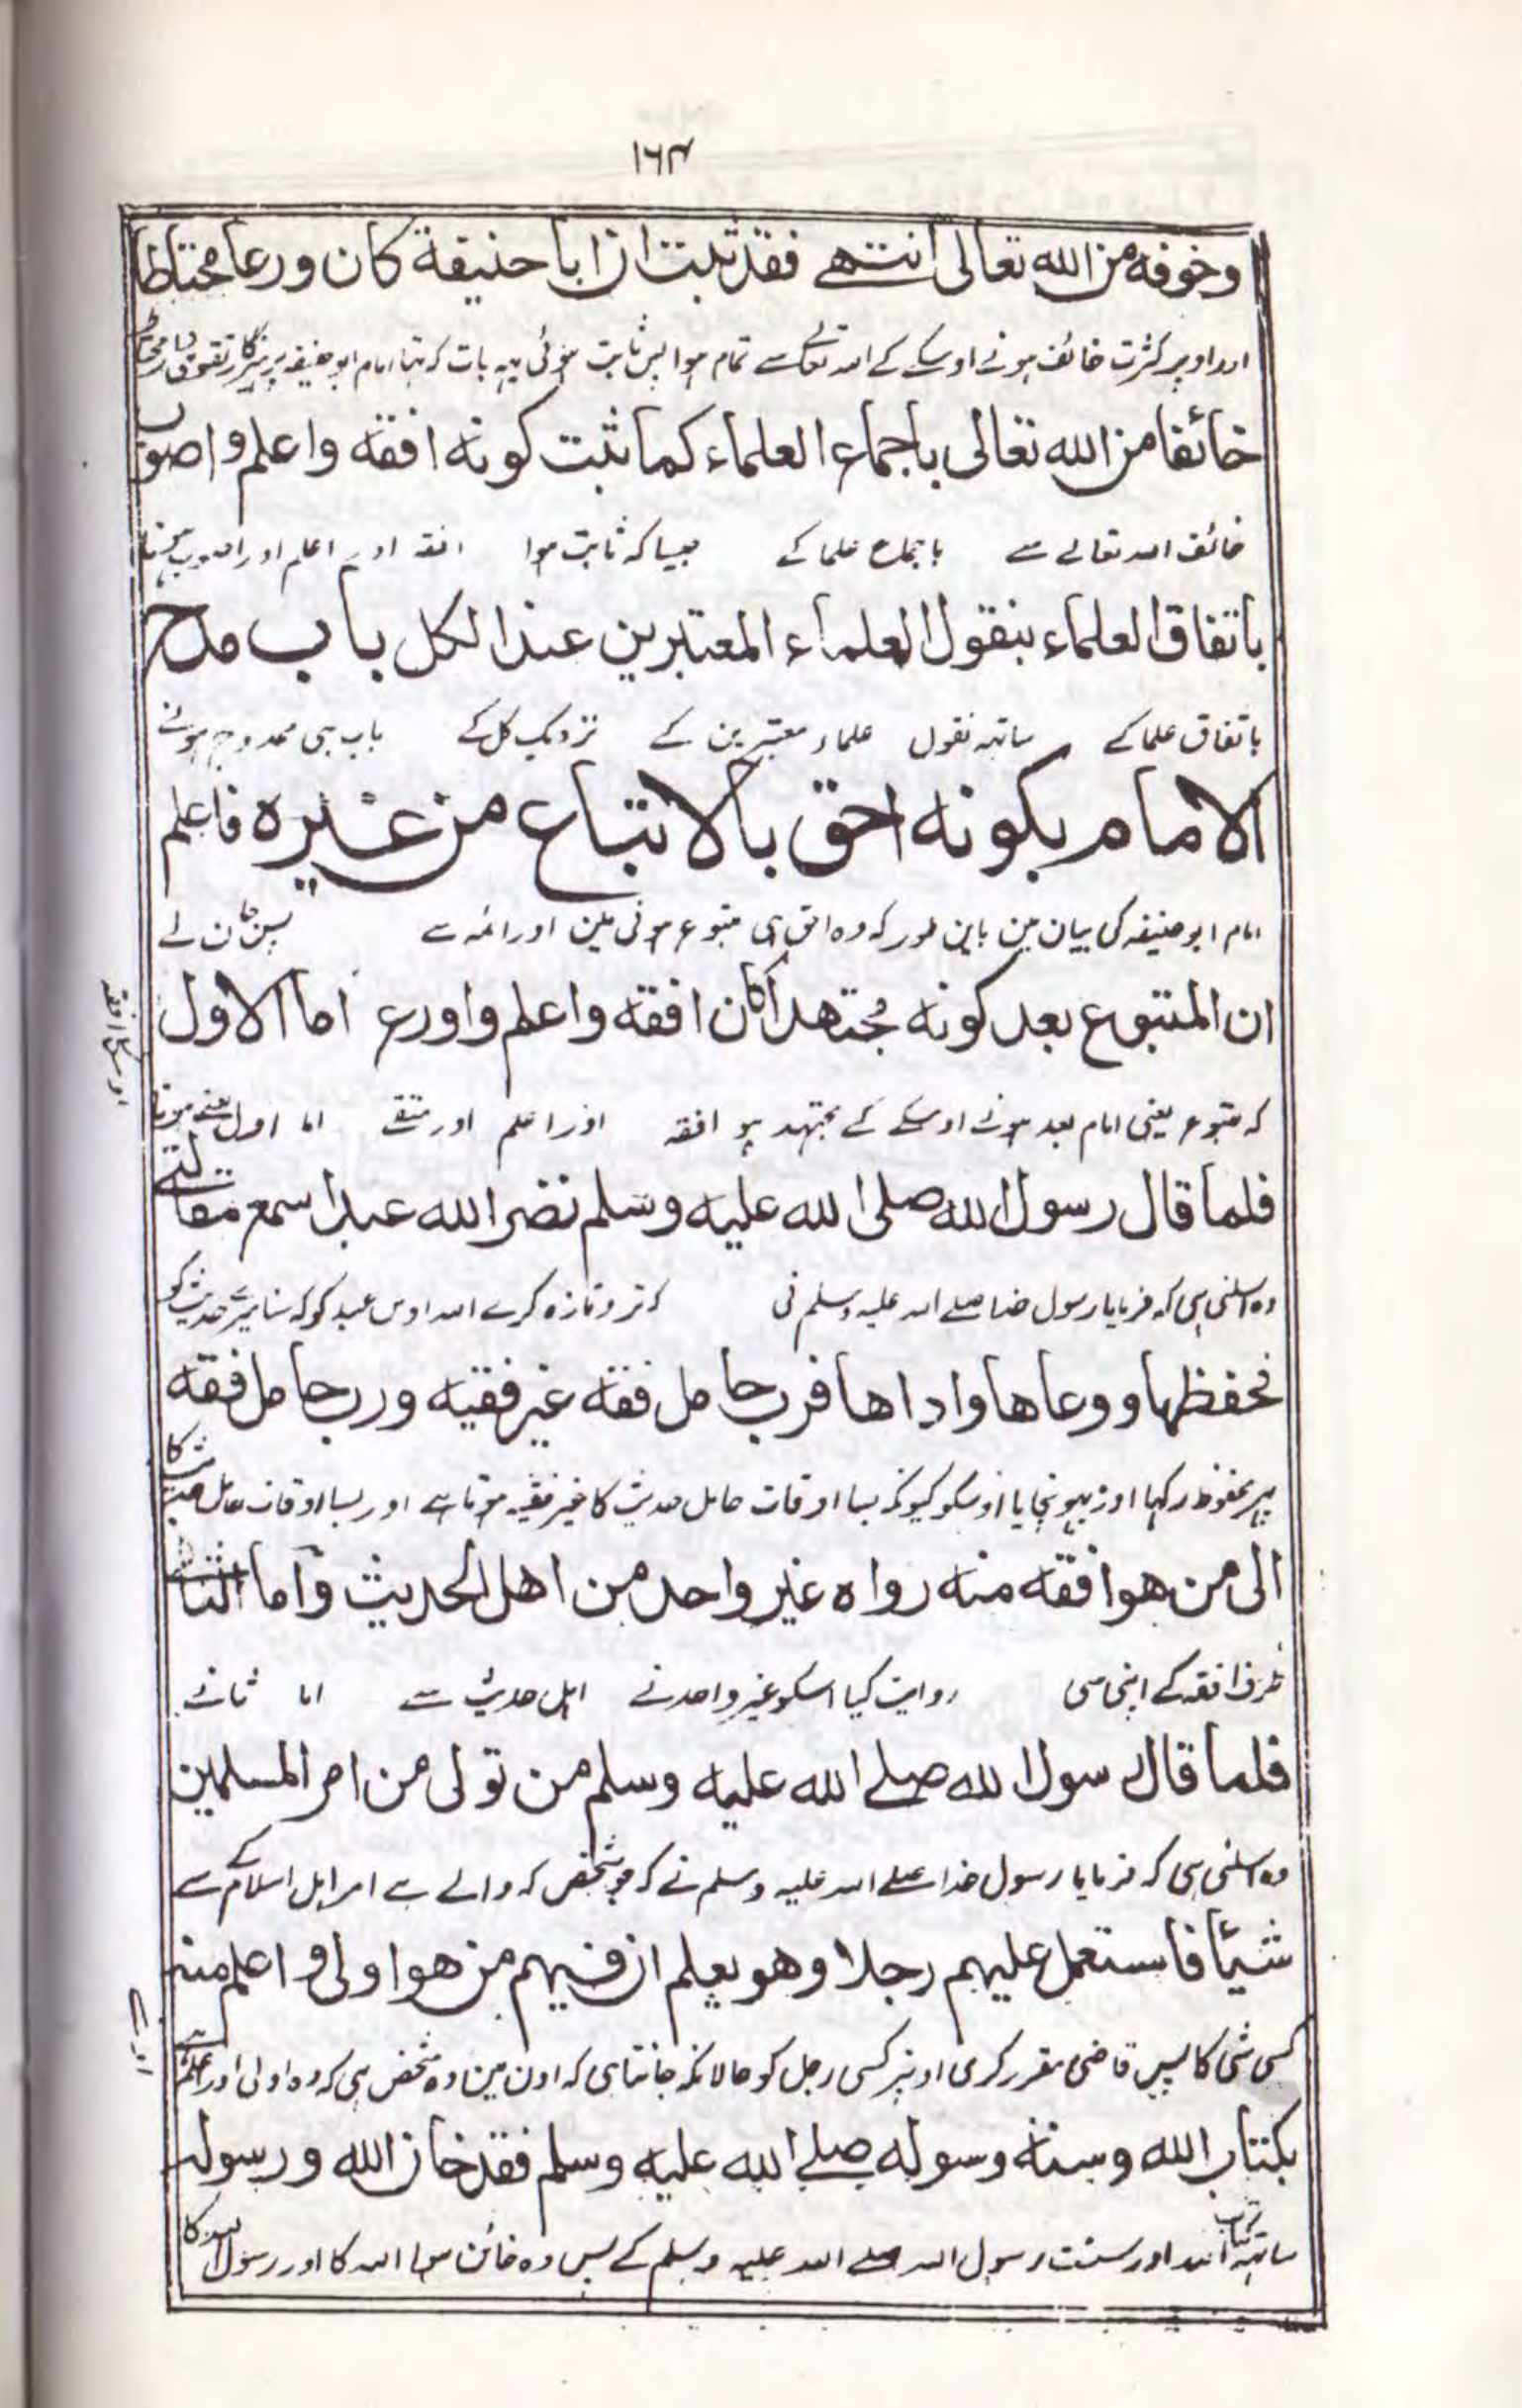 ۱۶۴
وخوفه من الله تعالى انتهى فقد ثبت ان ابا حنيفة كان ورعا محتاطا
اور اوپر کثرت خائف ہونے اوسکے کے اللہ تعالے سے تمام ہوا پس ثابت ہوئی یہہ بات کہ تہا امام ابو حنیفہ پرہیزگار
خائفا من الله تعالى باجماع العلماء كما ثبت كونه افقه واعلم واصوب
خائف اللہ تعالے سے باجماع علما کے جیسا کہ ثابت ہوا افقہ اور اعلم اور اصوب ہونا
باتفاق العلماء بنقول العلماء المعتبرين عند الكل باب مدح
باتفاق علما کے ساتہہ نقول علماء معتبرین کے نزدیک کل کے باب ہی ممدوح ہونے
الامام بكونه احق بالاتباع من غيره فاعلم
امام ابو حنیفہ کی بیان مین باین طور کہ وہ احق ہی متبوع ہونی مین اور ائمہ سے پس جان لے
ان المتبوع بعد كونه مجتهدا كان افقه واعلم واورع اما الاول
کہ متبوع یعنی امام بعد ہونے اوسکے کے مجتہد ہو افقہ اور اعلم اور متقے اما اول یعنے ہونا
فلما قال رسول الله صلى الله عليه وسلم نضر الله عبدا سمع مقالتي
وہ اسلئی ہی کہ فرمایا رسول خدا صلے اللہ علیہ وسلم نی کہ تر و تازہ کرے اللہ اوس عبد کو کہ سنا میرے حدیث کو
فحفظها ووعاها واداها فرب حامل فقه غير فقيه ورب حامل فقه
پہر محفوظ رکہا اور پہونچایا اوسکو کیونکہ بسا اوقات حامل حدیث کا غیر فقیہ ہوتا ہے اور بسا اوقات حامل حدیث کا
الى من هو افقه منه رواه غير واحد من اهل الحديث واما الثانى
طرف افقہ کے اپنی سی روایت کیا اسکو غیر واحد نے اہل حدیث سے اما ثانے
فلما قال رسول الله صلے الله عليه وسلم من تولى من امر المسلمين
وہ اسلئی ہی کہ فرمایا رسول خدا صلے اللہ علیہ وسلم نے کہ جو شخص کہ والے ہے امر اہل اسلام کے سے
شيئا فاستعمل عليهم رجلا وهو يعلم ان فيهم من هو اولى واعلم منه
کسی شی کا پس قاضی مقرر کری اوپر کسی رجل کو حالانکہ جانتا ہی کہ اون مین وہ شخص ہی کہ وہ اولی اور اعلم
بكتاب الله وسنة رسوله صلے الله عليه وسلم فقد خان الله ورسوله
ساتہہ کتاب اللہ اور سنت رسول اللہ صلے اللہ علیہ وسلم کے پس وہ خائن ہوا اللہ کا اور رسول اللہ کا